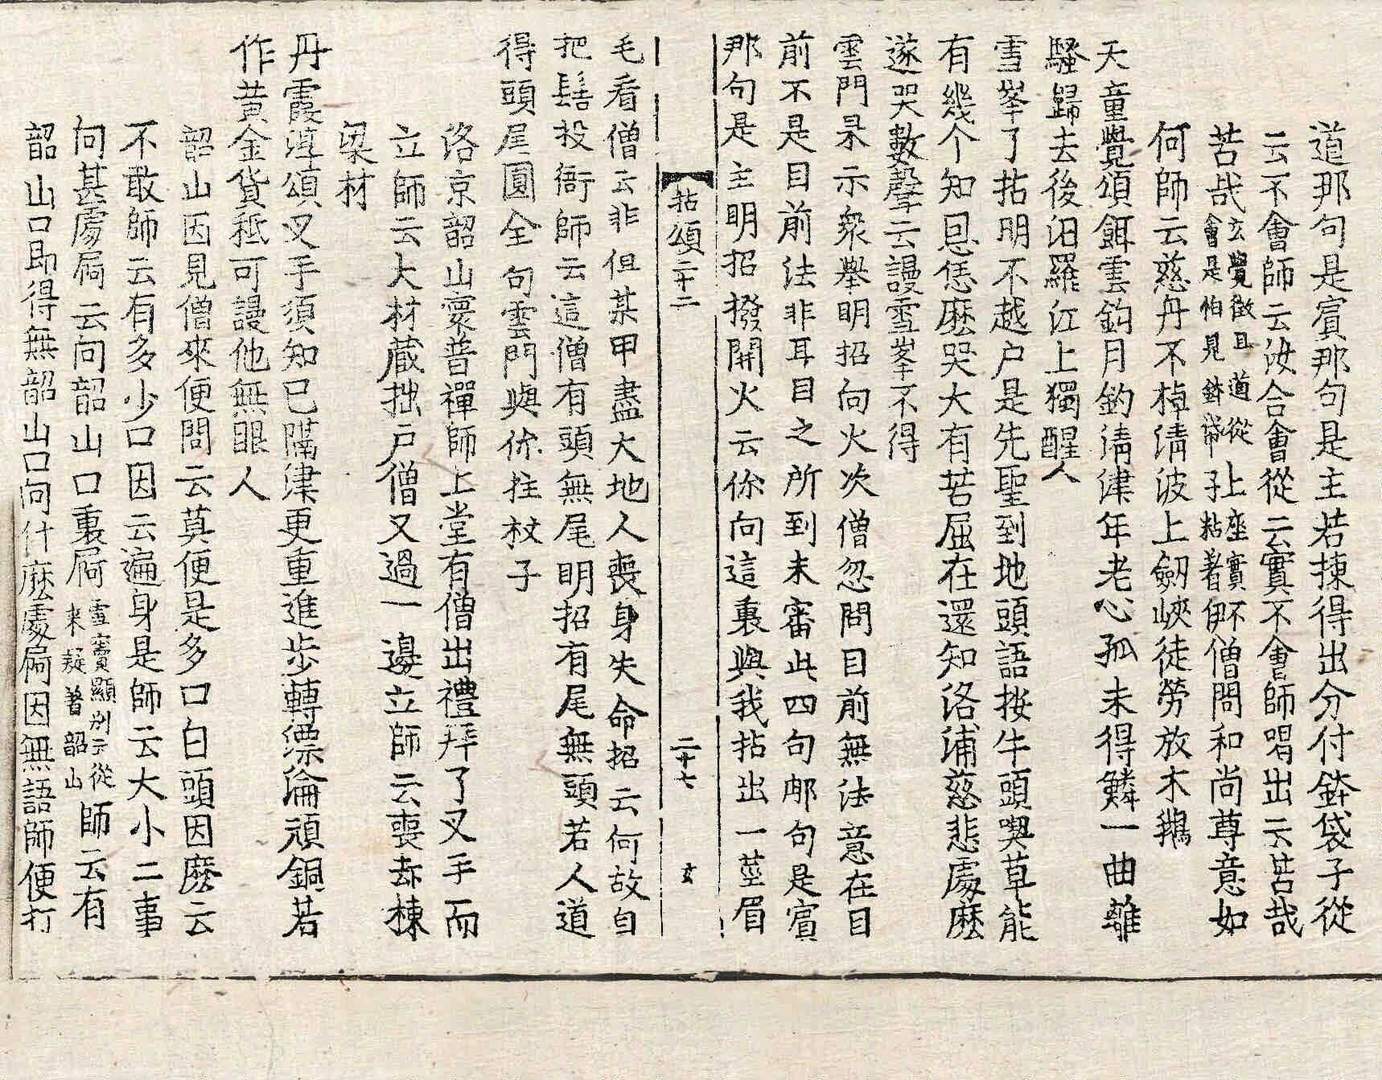 道那句是賓那句是主若揀得出分付鉢袋子從
云不會師云汝合會從云實不會師喝出云苦哉
苦哉玄覺徵且道從上座實不會是怕見鉢帒子粘著伊僧問和尚尊意如
何師云慈舟不棹淸波上劒峽徒勞放木鵝
天童覺頌餌雲鈎月釣淸津年老心孤未得鱗一曲離
騷歸去後汨羅江上獨醒人
雪峯了拈明不越户是先聖到地頭語按牛頭喫草能
有幾个知恩恁麽哭大有苦屈在還知洛浦慈悲處麽
遂哭數聲云謾雪峯不得
雲門杲示衆擧明招向火次僧忽問目前無法意在目
前不是目前法非耳目之所到未審此四句那句是賓
那句是主明招撥開火云你向這裏與我拈出一莖眉
拈頌二十二 二十七 玄
毛看僧云非但某甲盡大地人喪身失命招云何故自
把髻投衙師云這僧有頭無尾明招有尾無頭若人道
得頭尾圓全句雲門與你拄杖子
洛京韶山寰普禪師上堂有僧出禮拜了叉手而
立師云大材藏拙户僧又過一邊立師云喪却棟
梁材
丹霞淳頌叉手須知已隔津更重進步轉漂淪頑銅若
作黃金貨秪可謾他無眼人
韶山因見僧來便問云莫便是多口白頭因麽云
不敢師云有多少口因云遍身是師云大小二事
向甚處屙云向韶山口裏屙雪竇顯別云從來疑著韶山師云有
韶山口即得無韶山口向什麽處屙因無語師便打